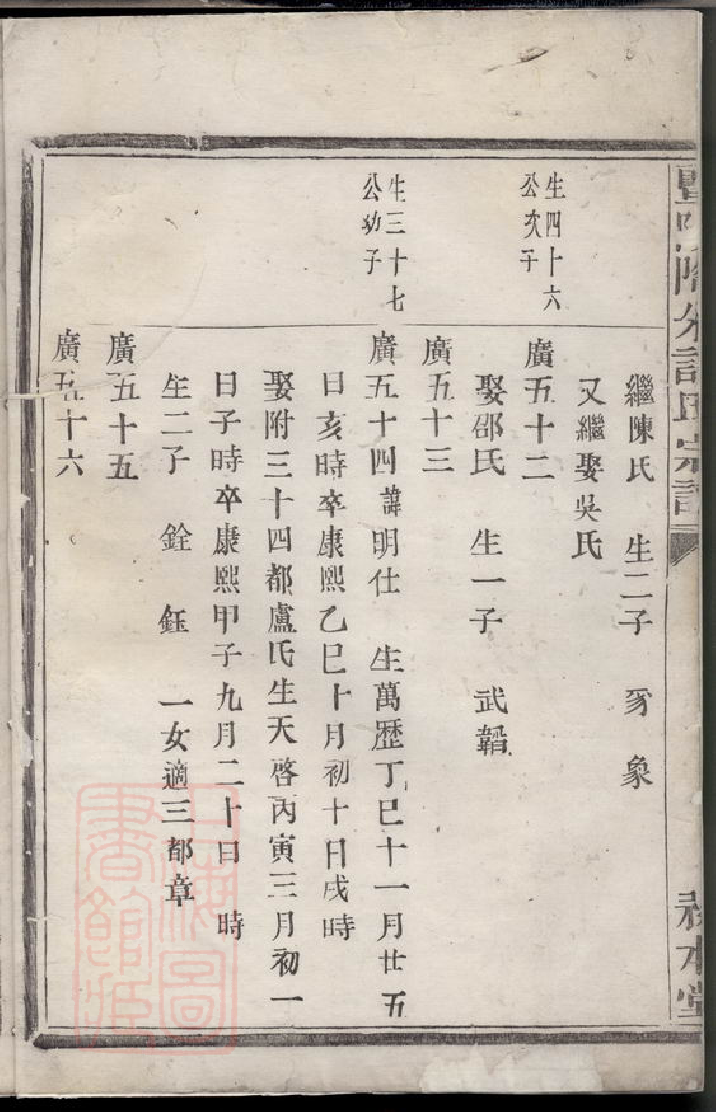 繼陳氏 生二子 豸 象
又繼娶吳氏
生四十六
公次子
廣五十二
娶邵氏 生一子 武韜
廣五十三
生三十七
公幼子
廣五十四諱明仕 生萬歷丁巳十一月廿五
日亥時卒康熙乙巳十月初十日戌時
娶附三十四都盧氏生天啓丙寅三月初一
日子時卒康熙甲子九月二十日 時
生二子 銓 鈺 一女適三都章
廣五十五
廣五十六
上海圖
書館藏